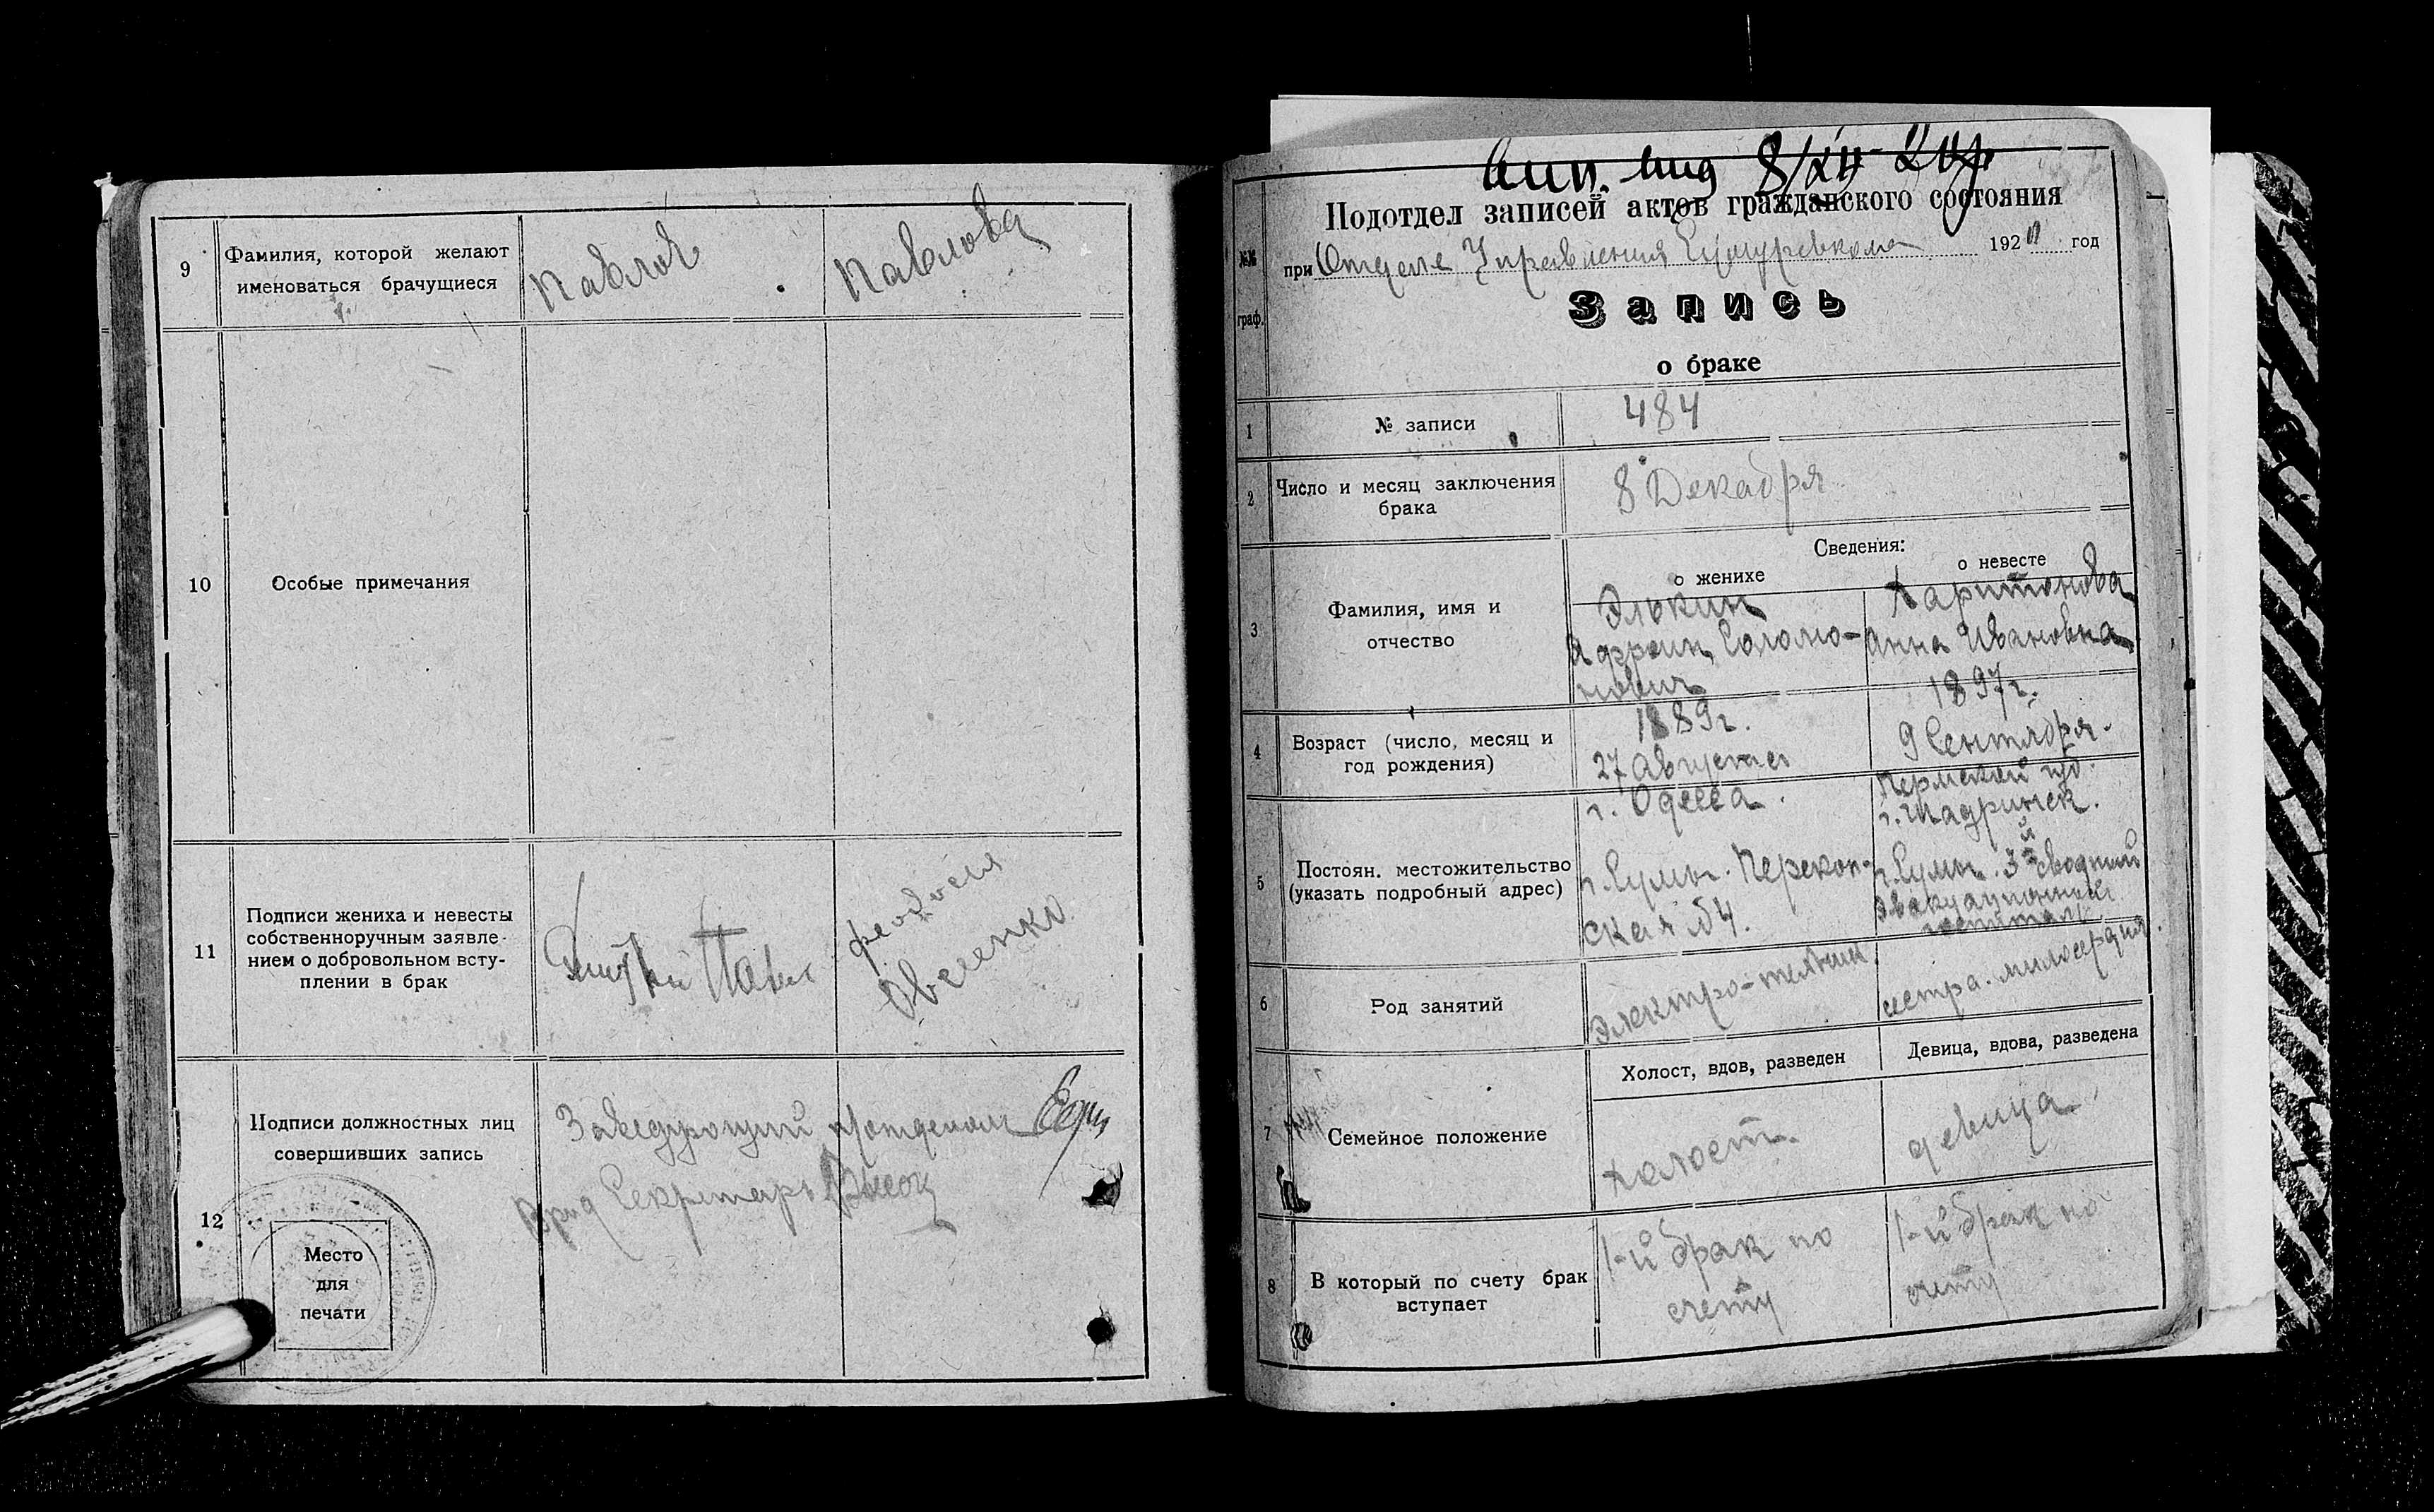 9
Фамилия, которой желают
именоваться брачущиеся
Павлов
Павлова
10
Особые примечания
11
Подписи жениха и невесты
собственноручным заявле-
нием о добровольном всту-
плении в брак
Феодосия
Овсеенко
12
Подписи должностных лиц
совершивших запись
Заведующий п/отделом
Врид Секретарь
Место
для
печати
8/XII-20г
Подотдел записей актов гражданского состояния
№№
граф.
при Отделе Управления 1920 год
Запись
о браке
1
№ записи
484
2
Число и месяц заключения
брака
8 Декабря
Сведения:
о женихе
о невесте
3
Фамилия, имя и
отчество
Элькин
Соломо-
нович
Харитонова
Анна Ивановна
4
Возраст (число, месяц и
год рождения)
1889г.
27 Августа
1897г.
9 Сентября.
5
Постоян. местожительство
(указать подробный адрес)
г. Одесса.
г. Сумы. Перекоп-
ская №4.
Пермской губ.
г. Шадринск.
г. Сумы. 3й сводный
эвакуационный
госпиталь
6
Род занятий
электро-техник.
сестра. милосердия.
7
Семейное положение
Холост, вдов, разведен
Девица, вдова, разведена
холост.
девица
8
В который по счету брак
вступает
1-й брак по
счету
1-й брак по
счету